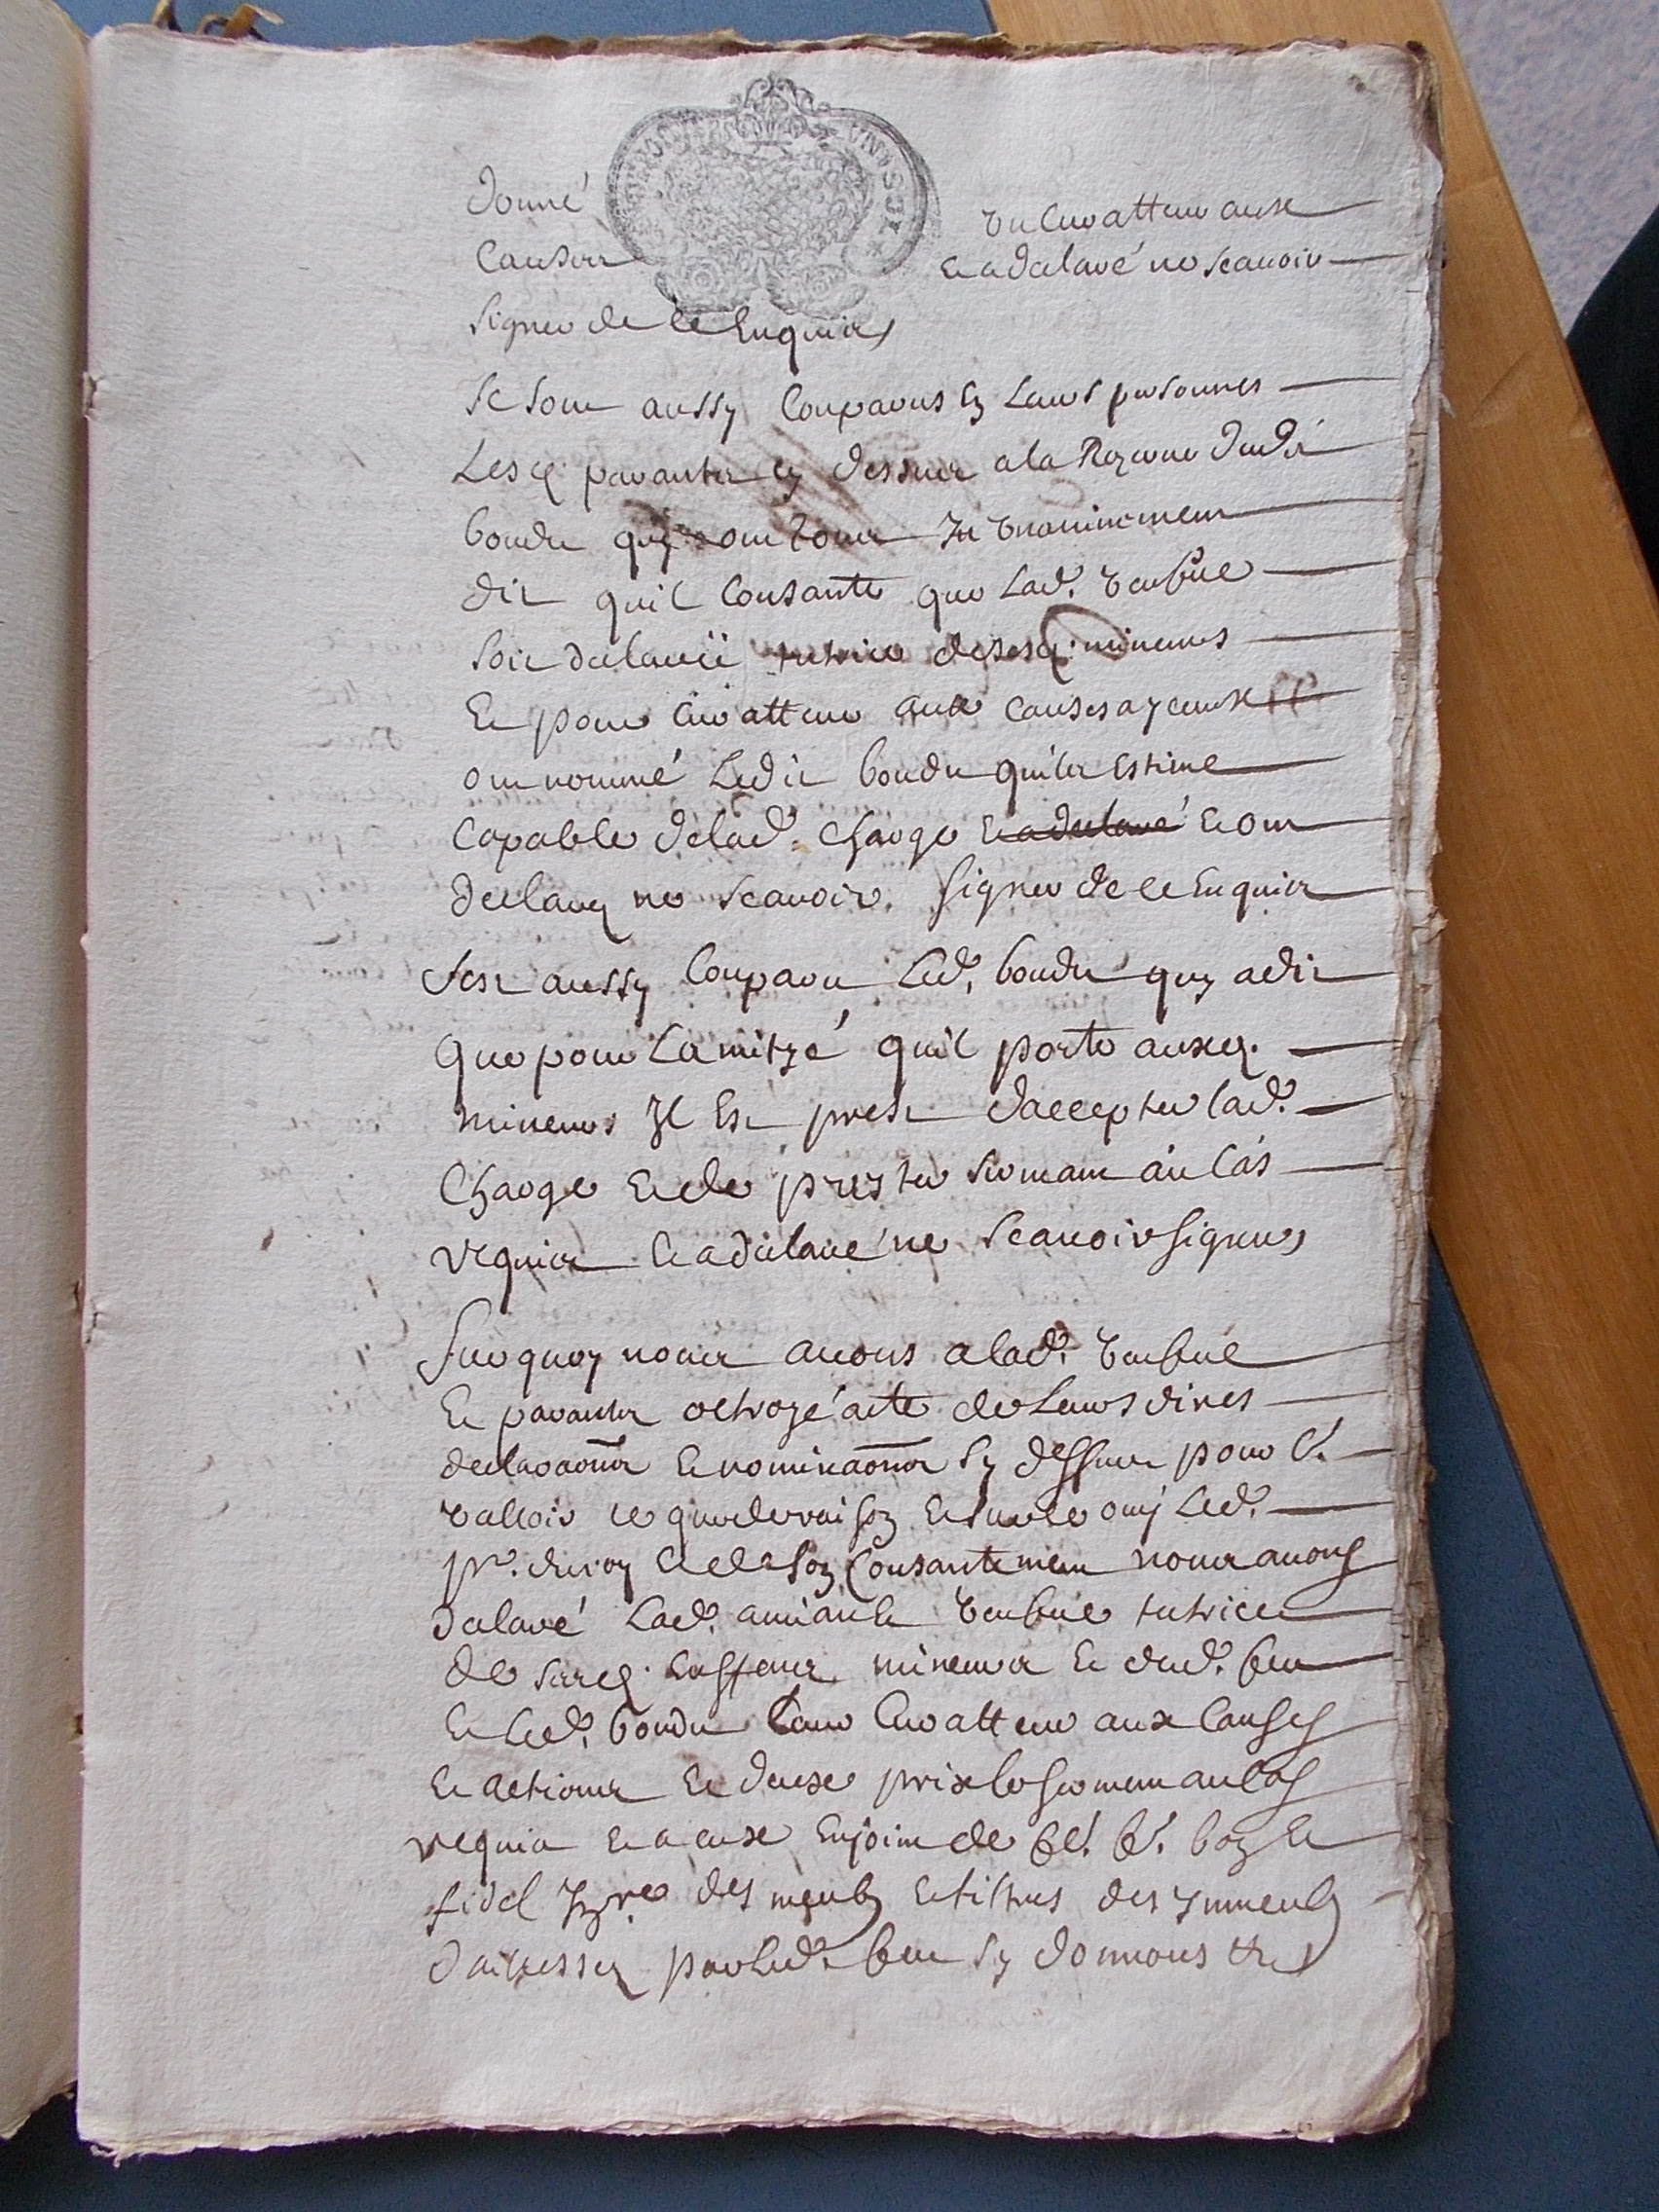 donné un curatteur aux
causes et a declaré ne scauoir
signer de ce Enquis
Se sont aussy comparus En leurs personnes
Lesq. parantz cy dessus a la Rezerue dudit
boudu quy ont tous vnanimement
dit quil consante que lad. veufue
soit declarée tutrice desesq. mineurs
Et pour curatteur aux causes ayceux
ont nommé Ledit boudu quils Estime
Capable delad. charge et a declaré et ont
declaré ne scauoir signer de ce Enquis
sest aussy comparu Led. boudu quy adit
que pour lamityé quil porte auxq.
mineurs Il Est prest daccepter lad.
charge et de prester sermant au cas
requis et a declaré ne scauoir signer
Sur quoy nous auons a lad. veufue
Et parantz octroyé acte de Leurs dires
declaraõns et nominaõns cy dessus pour l.
valloir ce que de raison et sur ce ouy Led.
pr. du roy et de son consantement nous auons
declaré Lad. veufue tutrice
de sesq. Enffans mineurs et dud. feu
et Led. boudu leur curatteur aux causes
et actions et deux pris le serment au cas
requis et a eux Enjoint de fe. fe. bon et
fidel Inre des meubles et tiltres des ymmeubles
delaissez par Led. feu sy donnons etc